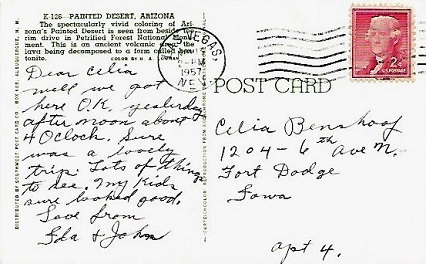 K-126 PAINTED DESERT, ARIZONA
The spectacularly vivid coloring of Ari-
zona's Painted Desert is seen from beside
rim drive in Petrified Forest National
ment. This is an ancient volcanic area, the
lava being decomposed to a form called
tonite.
COLOR BY H. A.
VEGAS,
PM
1957
NEV.
2¢
U.S. POSTAGE
POST CARD
Dear Celia
Well we got
here O.K. yesterday
after noon about
4 Oclock. Sure
was a lovely
trip. Lots of things
to see. My kids
sure looked good.
Love from
Ida & John
Celia Benshoof
1204-6th Ave N.
Fort Dodge
Iowa
apt 4.